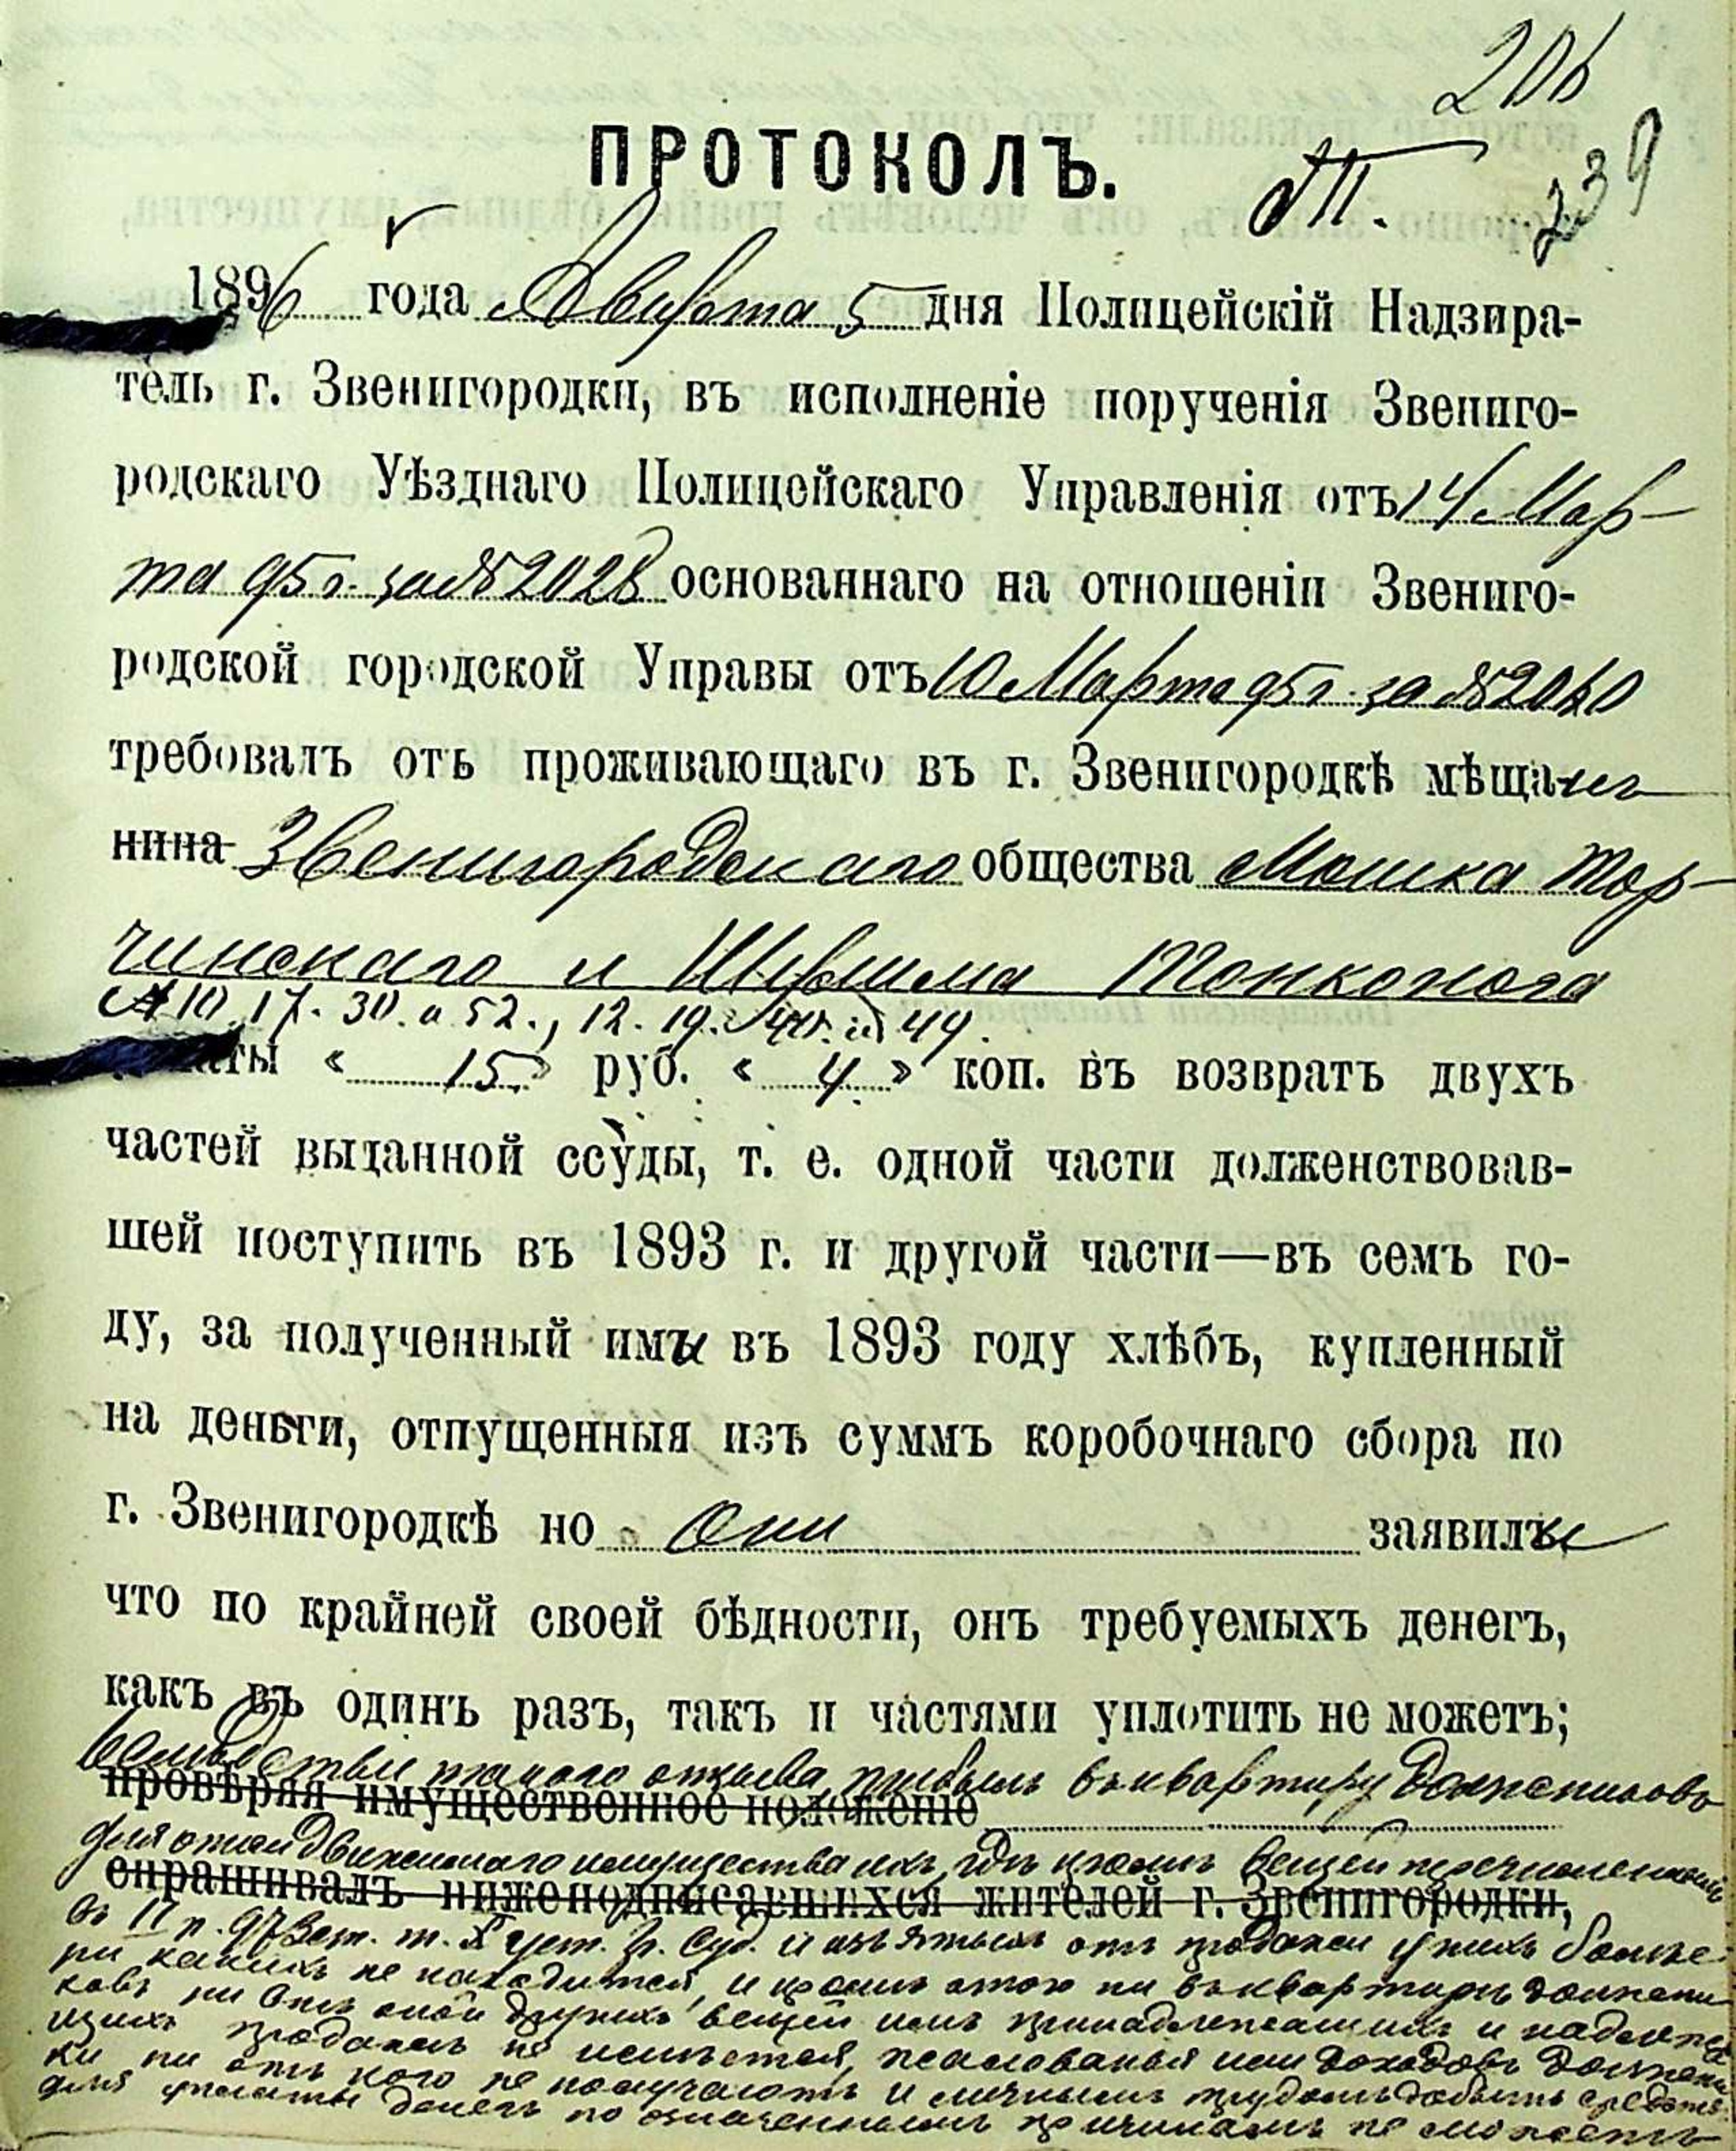 206
ПРОТОКОЛЪ.
239
1896 года Августа 5 дня Полицейскій Надзира-
тель г. Звенигородки, въ исполненіе порученія Звениго-
родскаго Уѣзднаго Полицейскаго Управленія отъ 14 Мар-
та 95 г. за № 2028 основаннаго на отношеніи Звениго-
родской городской Управы отъ 10 Марта 95 г. за №
требовалъ отъ проживающаго въ г. Звенигородкѣ мѣща
нина Звенигородскаго общества Мошка Тор-
чинскаго и Шуллима Тонконога
№ 10. 17. 30. и 52., 12. 19. и 49.
« 15 » руб. « 4 » коп. въ возвратъ двухъ
частей выданной ссуды, т. е. одной части долженствовав-
шей поступить въ 1893 г. и другой части—въ семъ го-
ду, за полученный ими въ 1893 году хлѣбъ, купленный
на деньги, отпущенныя изъ суммъ коробочнаго сбора по
г. Звенигородкѣ но Они заявили
что по крайней своей бѣдности, онъ требуемыхъ денегъ,
какъ въ одинъ разъ, такъ и частями уплотить не можетъ;
Вслѣдствіи такого отзыва, прибылъ въ квартиру должниковъ
провѣряя имущественное положеніе
для описи движимаго имущества ихъ, гдѣ кромѣ вещей перечисленныхъ
спрашивалъ нижеподписавшихся жителей г. Звенигородки,
въ II п. 973 ст. т. X уст. Гр. Суд. и изъятыхъ отъ продажи у нихъ болѣе
ни какихъ не находится, и кромѣ этого ни въ квартирѣ должни-
ковъ ни внѣ оной другихъ вещей имъ принадлежащихъ и надлежа-
щихъ продажѣ не имѣется, жалованья или доходовъ должни-
ки ни отъ кого не получаютъ и личнымъ трудомъ добыть средствъ
для уплаты денегъ по означеннымъ причинамъ не можетъ